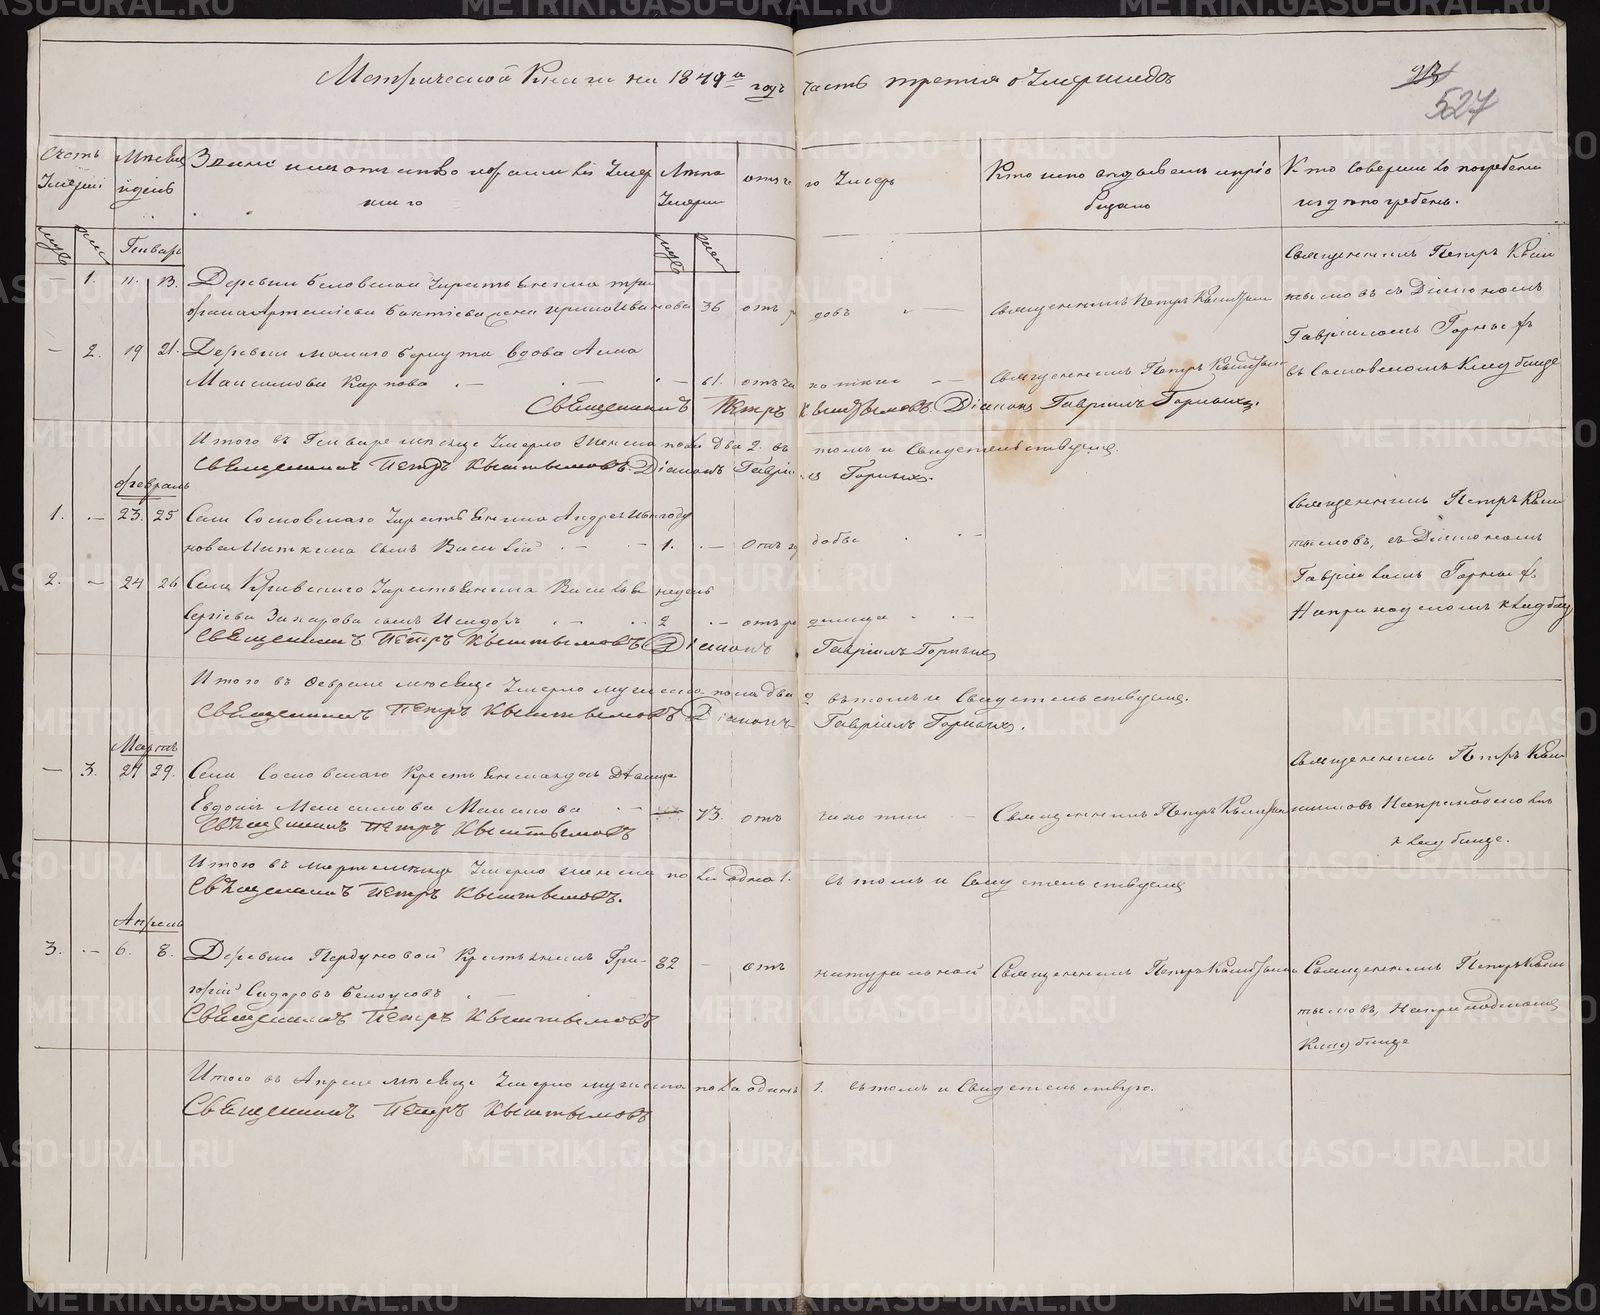 Метрической Книги на 1879й годъ часть третія о Умершихъ
527
Счетъ Умерши
Мѣсяцъ и день
Званіе имя отчество и фамилія Умер
шаго
Лѣта Умерш
отъ чего Умеръ
Кто исповѣдывалъ и пріо
бщалъ
Кто совершалъ погребеніе
и гдѣ погребены.
Генварь
— 1. 11. 13. Деревни Беловской Крестьянина Три
фона Артеміева Бактіева жена Ирина Иванова 36 отъ родовъ —
Священникъ Петръ Кыштымовъ
Священникъ Петръ Кыш
тымовъ съ Діакономъ
Гавріиломъ Горныхъ
въ Сосновскомъ Кладбище
— 2. 19 21. Деревни Малаго Беркута вдова Анна
Максимова Карпова — — 61. отъ чахотки —
Священникъ Петръ Кыштымовъ
Священникъ Петръ Кыштымовъ Діаконъ Гавріилъ Горныхъ.
Итого въ Генваре мѣсяце Умерло женска пола два 2. въ томъ и Свидетельствуемъ.
Священникъ Петръ Кыштымовъ. Діаконъ Гавріилъ Горныхъ.
февраль
1. — 23. 25 Села Сосновскаго Крестьянина Андрея
сынъ Василій — 1. —
Священникъ Петръ Кыш
тымовъ, съ Діакономъ
Гавріиломъ Горныхъ
На приходскомъ кладбищ
2. — 24 26 Села Крестьянина Василья недель
Сергіева Захарова сынъ Исидоръ — 2 — отъ родимца —
Священникъ Петръ Кыштымовъ Діаконъ Гавріилъ Горныхъ
Итого въ Феврале мѣсяце Умерло мужеска пола два 2 въ томъ и Свидетельствуемъ.
Священникъ Петръ Кыштымовъ Діаконъ Гавріилъ Горныхъ.
Мартъ
— 3. 27 29. Села Сосновскаго Крестьянская девица
Евдокія Максимова — 73. отъ чахотки —
Священникъ Петръ Кыштымовъ
Священникъ Петръ Кыш
тымовъ На приходскомъ
кладбище.
Священникъ Петръ Кыштымовъ
Итого въ марте месяце Умерло женска пола одна 1. въ томъ и Свидетельствуемъ
Священникъ Петръ Кыштымовъ.
Апрель
3. — 6. 8. Деревни Пердуновой Крестьянинъ Гри-
горій Сидоровъ Белоусовъ 82 — отъ натуральной
Священникъ Петръ Кыштымовъ
Священникъ Петръ Кыш
тымовъ, На приходскомъ
Кладбище
Священникъ Петръ Кыштымовъ
Итого въ Апреле мѣсяце Умерло мужеска пола одинъ 1. въ томъ и Свидетельствую.
Священникъ Петръ Кыштымовъ
METRIKI.GASO-URAL.RU